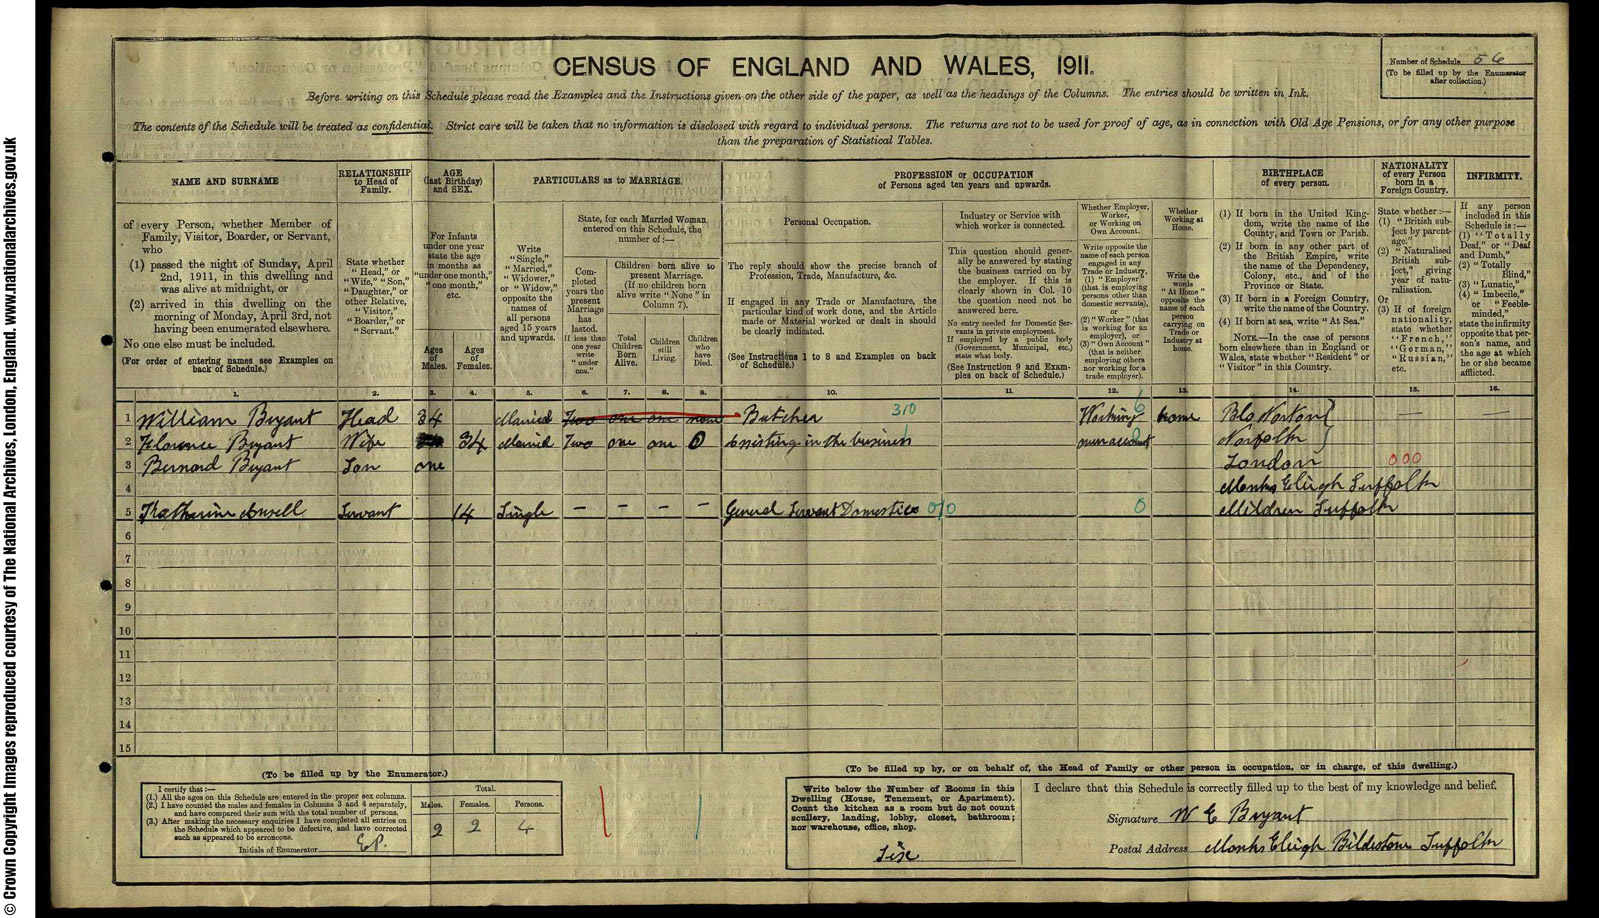 © Crown Copyright Images reproduced courtesy of The National Archives, London, England. www.nationalarchives.gov.uk
CENSUS OF ENGLAND AND WALES, 1911.
Number of Schedule 56
(To be filled up by the Enumerator after collection.)
Before writing on this Schedule please read the Examples and the Instructions given on the other side of the paper, as well as the headings of the Columns. The entries should be written in Ink.
The contents of the Schedule will be treated as confidential. Strict care will be taken that no information is disclosed with regard to individual persons. The returns are not to be used for proof of age, as in connection with Old Age Pensions, or for any other purpose
than the preparation of Statistical Tables.
NAME AND SURNAME
of every Person, whether Member of
Family, Visitor, Boarder, or Servant,
who
(1) passed the night of Sunday, April
2nd, 1911, in this dwelling and
was alive at midnight, or
(2) arrived in this dwelling on the
morning of Monday, April 3rd, not
having been enumerated elsewhere.
No one else must be included.
(For order of entering names see Examples on
back of Schedule.)
RELATIONSHIP
to Head of
Family.
State whether
"Head," or
"Wife," "Son,"
"Daughter," or
other Relative,
"Visitor,"
"Boarder," or
"Servant."
AGE
(last Birthday)
and SEX.
For Infants
under one year
state the age
in months as
"under one month,"
"one month,"
etc.
Ages
of
Males.
Ages
of
Females.
PARTICULARS as to MARRIAGE.
Write
"Single,"
"Married,"
"Widower,"
or "Widow,"
opposite the
names of
all persons
aged 15 years
and upwards.
State, for each Married Woman
entered on this Schedule, the
number of:—
Com-
pleted
years the
present
Marriage
has
lasted.
If less than
one year
write
"under
one."
Children born alive to
present Marriage.
(If no children born
alive write "None" in
Column 7).
Total
Children
Born
Alive.
Children
still
Living.
Children
who
have
Died.
PROFESSION or OCCUPATION
of Persons aged ten years and upwards.
Personal Occupation.
The reply should show the precise branch of
Profession, Trade, Manufacture, &c.
If engaged in any Trade or Manufacture, the
particular kind of work done, and the Article
made or Material worked or dealt in should
be clearly indicated.
(See Instructions 1 to 8 and Examples on back
of Schedule.)
Industry or Service with
which worker is connected.
This question should gener-
ally be answered by stating
the business carried on by
the employer. If this is
clearly shown in Col. 10
the question need not be
answered here.
No entry needed for Domestic Ser-
vants in private employment.
If employed by a public body
(Government, Municipal, etc.)
state what body.
(See Instruction 9 and Exam-
ples on back of Schedule.)
Whether Employer,
Worker,
or Working on
Own Account.
Write opposite the
name of each person
engaged in any
Trade or Industry,
(1) "Employer"
(that is employing
persons other than
domestic servants),
or
(2) "Worker" (that
is working for an
employer), or
(3) "Own Account"
(that is neither
employing others
nor working for a
trade employer).
Whether
Working at
Home.
Write the
words
"At Home"
opposite the
name of each
person
carrying on
Trade or
Industry at
home.
BIRTHPLACE
of every person.
(1) If born in the United King-
dom, write the name of the
County, and Town or Parish.
(2) If born in any other part of
the British Empire, write
the name of the Dependency,
Colony, etc., and of the
Province or State.
(3) If born in a Foreign Country,
write the name of the Country.
(4) If born at sea, write "At Sea."
NOTE.—In the case of persons
born elsewhere than in England or
Wales, state whether "Resident" or
"Visitor" in this Country.
NATIONALITY
of every Person
born in a
Foreign Country.
State whether:—
(1) "British sub-
ject by parent-
age."
(2) "Naturalised
British sub-
ject," giving
year of natu-
ralisation.
Or
(3) If of foreign
nationality,
state whether
"French,"
"German,"
"Russian,"
etc.
INFIRMITY.
If any person
included in this
Schedule is:—
(1) "Totally
Deaf," or "Deaf
and Dumb,"
(2) "Totally
Blind,"
(3) "Lunatic,"
(4) "Imbecile,"
or "Feeble-
minded,"
state the infirmity
opposite that per-
son's name, and
the age at which
he or she became
afflicted.
1. 2. 3. 4. 5. 6. 7. 8. 9. 10. 11. 12. 13. 14. 15. 16.
1 William Bryant Head 34 Married Two one one none Butcher 310 Working 6 home Blo Norton — —
2 Florence Bryant Wife 34 Married Two one one 0 Assisting in the business own account Norfolk
3 Bernard Bryant Son one London 000
4 Monks Eleigh Suffolk
5 Katharine Ansell Servant 14 Single – – – – General Servant Domestic 010 0 Milden Suffolk
6
7
8
9
10
11
12
13
14
15
(To be filled up by the Enumerator.)
I certify that:—
(1.) All the ages on this Schedule are entered in the proper sex columns.
(2.) I have counted the males and females in Columns 3 and 4 separately,
and have compared their sum with the total number of persons.
(3.) After making the necessary enquiries I have completed all entries on
the Schedule which appeared to be defective, and have corrected
such as appeared to be erroneous.
Initials of Enumerator EP.
Total.
Males. Females. Persons.
2 2 4
(To be filled up by, or on behalf of, the Head of Family or other person in occupation, or in charge, of this dwelling.)
Write below the Number of Rooms in this
Dwelling (House, Tenement, or Apartment).
Count the kitchen as a room but do not count
scullery, landing, lobby, closet, bathroom;
nor warehouse, office, shop.
Six
I declare that this Schedule is correctly filled up to the best of my knowledge and belief.
Signature W E Bryant
Postal Address Monks Eleigh Bildestone Suffolk